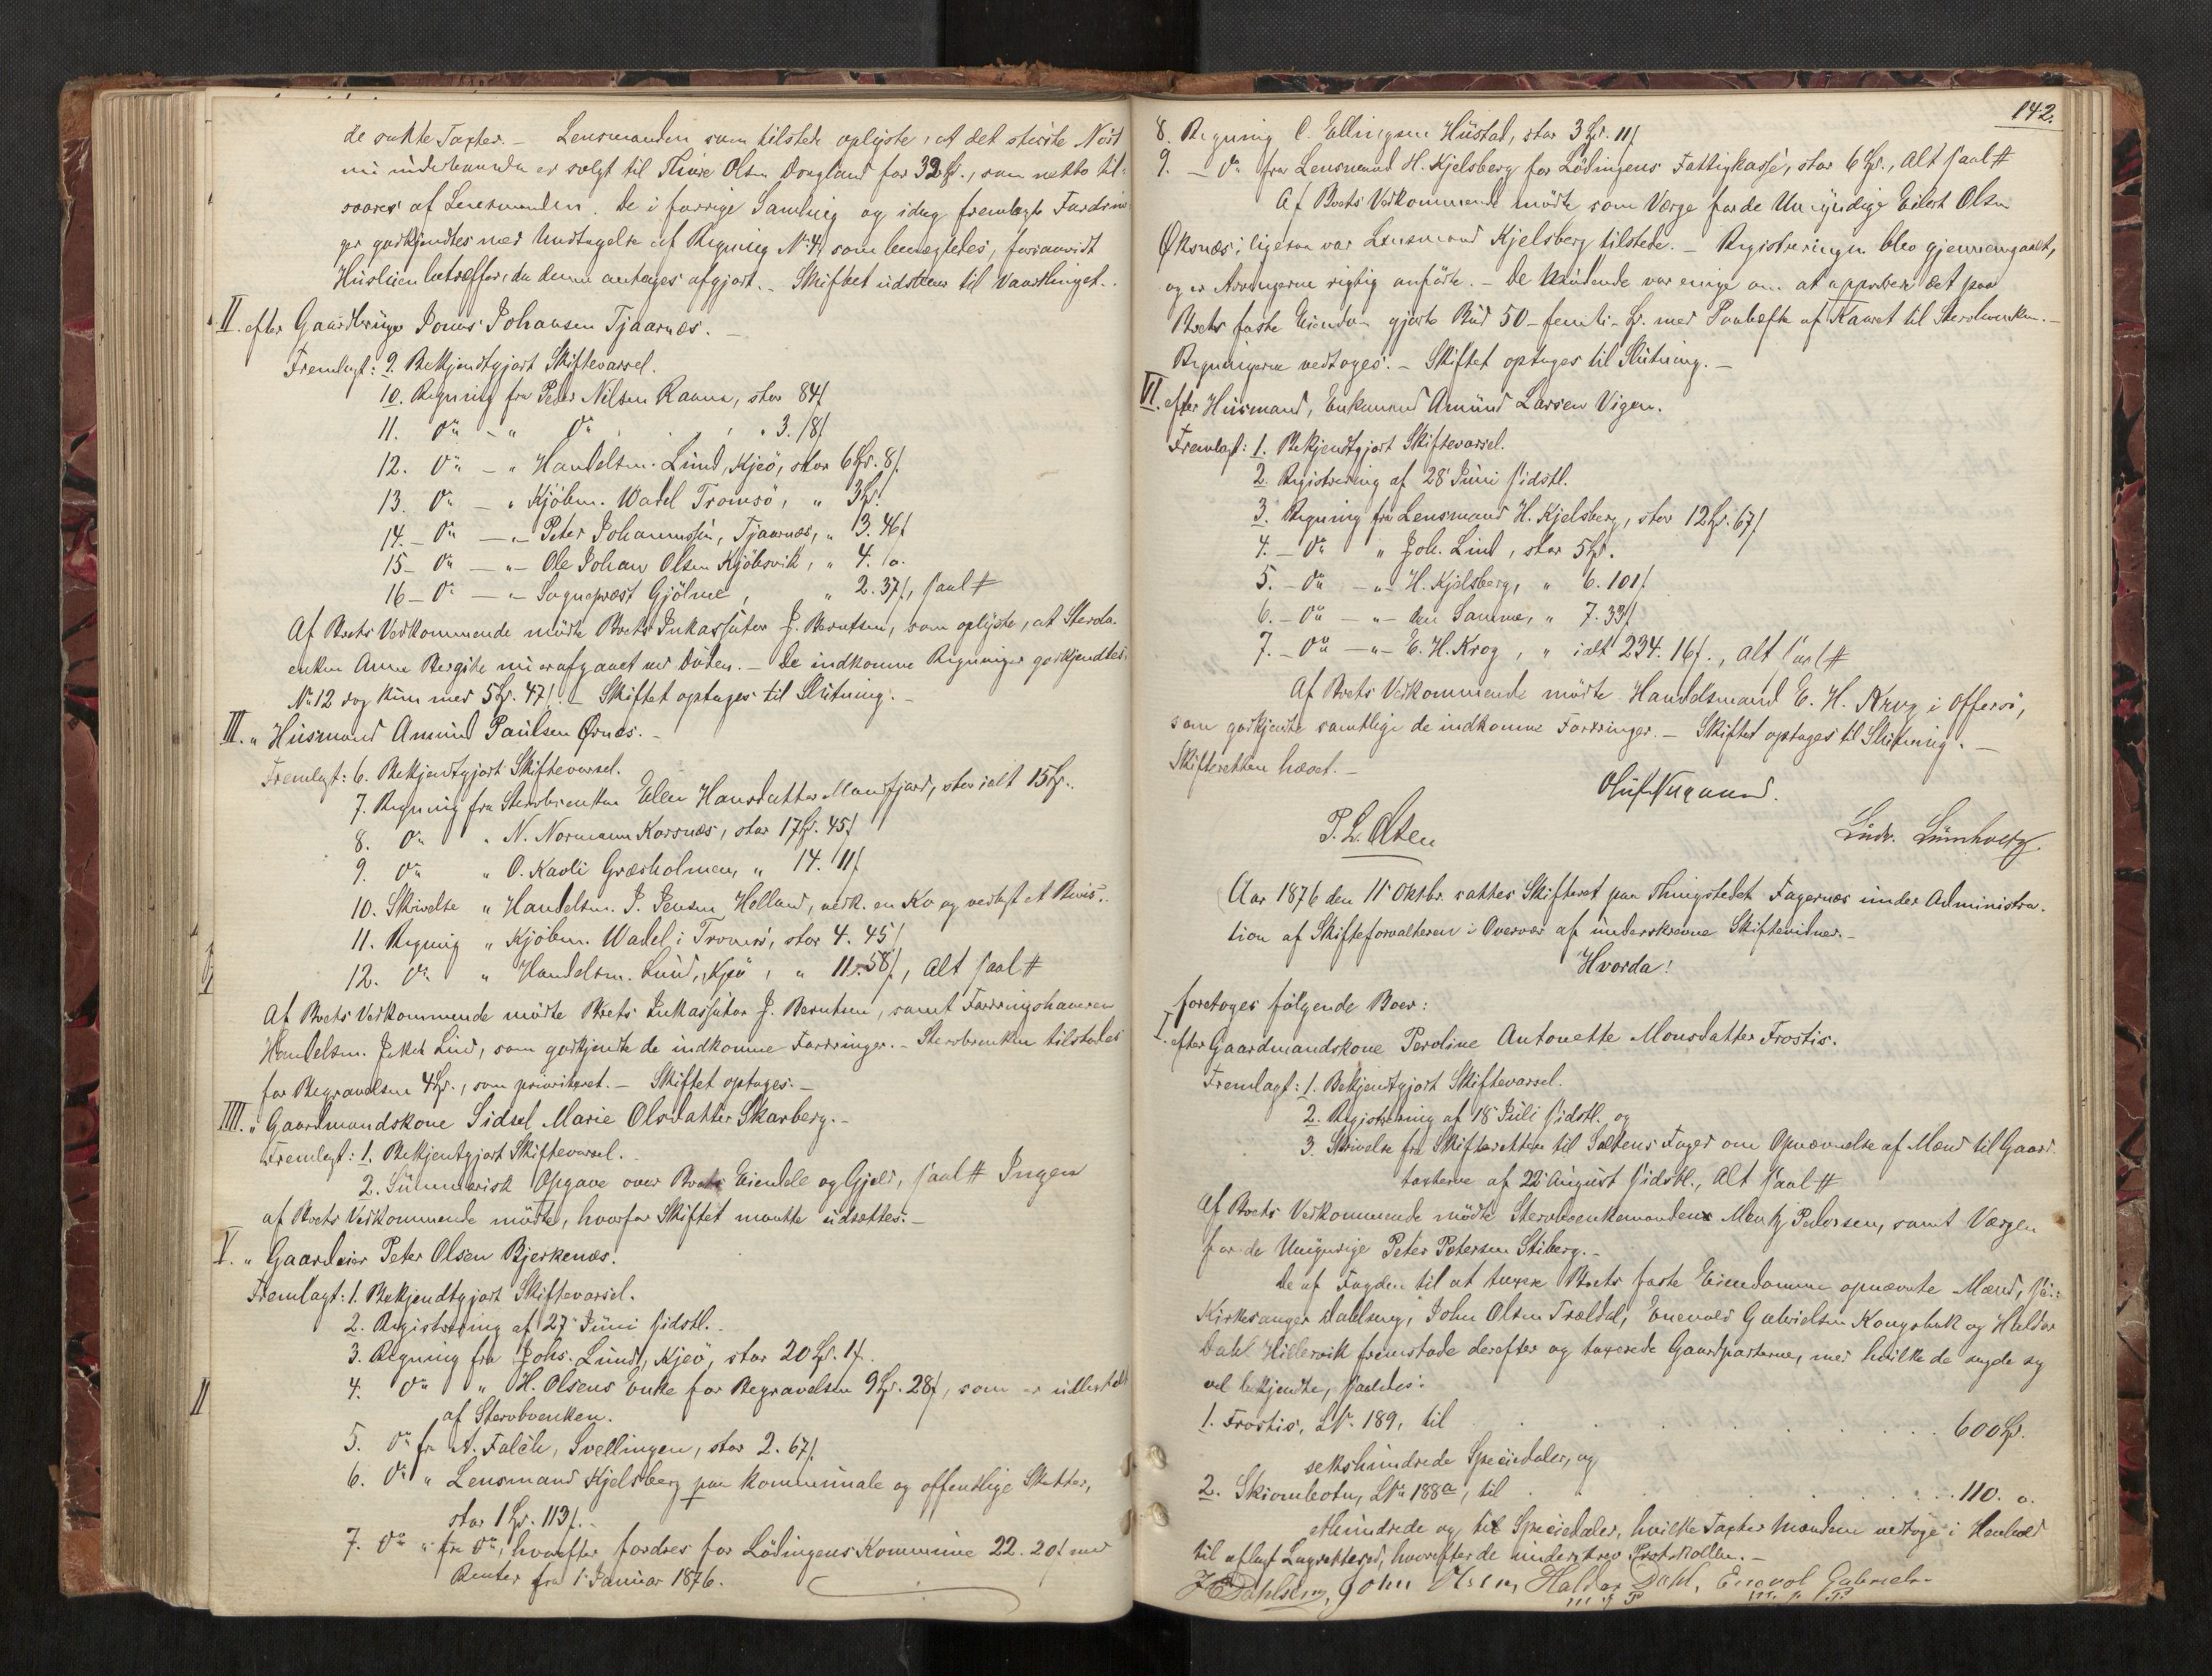 de satte Taxter. – Lensmanden som tilstede oplyste, at det største Nöst
nu underhaanden er solgt til Thore Olsen Dragland for 32 Sp., som netto til-
svares af Lensmanden. De i forrige Samling og idag fremlagte Fordrin-
ger godkjendtes med Undtagelse af Regning No 4 som benegtedes, forsaavidt
Husleien betræffer, da denne antages afgjort. – Skiftet udstaaer til Vaarthinget.
II. efter Gaardbruger Jonas Johansen Tjaarnæs. –
Fremlagt: 9. Bekjendtgjort Skiftevarsel.
10. Regning fra Peder Nilsen Ranna, stor 84 f
11. Do – " Do . . . 3. 18 f
12. Do – " Handelsm. Lund, Kjeö, stor 6 Sp. 8 f.
13. Do – " Kjöbm. Wadel Tromsö, " 3 Sp.
14. – Do – " – Peter Johannessen, Tjaarnæs, " 3. 46 f
15 – Do – " – Ole Johan Olsen Kjöbsvik, " 4. "o.
16 – Do – " – Sognepræst Gjölme, " 2. 37 f, saal #
Af Boets Vedkommende mödte Boets Inkassator J. Berntsen, som oplyste, at Sterbo-
enken Anne Bergite nu er afgaaet ved Döden. – De indkomne Regninger godkjendtes
No 12 dog kun med 5 Sp. 47 f. – Skiftet optages til Slutning. –
III. " Husmand Amund Paulsen Ørnes. –
Fremlagt: 6. Bekjendtgjort Skiftevarsel.
7. Regning fra Sterboenken Ellen Hansdatter Manfjord, stor ialt 15 Sp.
8. Do " N. Normann Korsnæs, stor 17 Sp. 45 f
9. Do " O. Kavli Græsholmen, " 14. 11 f
10. Skrivelse " Handelsm. J. Jensen Helland, vedk. en Ko og vedlagt et Bevis.
11. Regning " Kjöbm. Wadel i Tromsö, stor 4. 45 f
12. Do " Handelsm. Lund, Kjeö, " 11. 58 f, Alt saal #
Af Boets Vedkommende mödte Boets Inkassator J. Berntsen, samt Fordringshaveren
Handelsm. Lund, som godkjendte de indkomne Fordringer. – Sterboenken tilstodes
for Begravelsen 4 Sp., som prioriteret. – Skiftet optages. –
IIII. " Gaardmandskone Sidsel Marie Olsdatter Skarberg. –
Fremlagt: 1. Bekjentgjort Skiftevarsel.
2. Summarisk Opgave over Boets Eiendele og Gjeld, saal # Ingen
af Boets Vedkommende mödte, hvorfor Skiftet maatte udsættes. –
V. " Gaardeier Peter Olsen Bjerkenæs.
Fremlagt: 1. Bekjendtgjort Skiftevarsel.
2. Registrering af 27 Juni sidstl. –
3. Regning fra Johs. Lund, Kjeö, stor 20 Sp. 1 f.
4. Do " H. Olsens Enke for Begravelsen 9 Sp. 28 f, som er udbetalt
af Sterboenken.
5. Do fra A. Falch, Svellingen, stor 2. 67 f.
6. Do " Lensmand Kjelsberg paa kommunale og offentlige Skatter,
stor 1 Sp. 113 f. –
7. Do " fra Do, hvorefter fordres for Lödingens Kommune 22. 20 f med
Renter fra 1 Januar 1876.
142.
8. Regning C. Ellingsen Hustad, stor 3 Sp. 11 f
9. – Do fra Lensmand H. Kjelsberg for Lödingens Fattigkasse, stor 6 Sp., Alt saal #
Af Boets Vedkommende mödte som Værge for de Umyndige Eilert Olsen
Øksnæs; ligesaa var Lensmand Kjelsberg tilstede. – Registreringen blev gjennemgaaet,
og er Arvingerne rigtig anförte. – De Mödende var enige om at approbere det paa
Boets faste Eiendom gjorte Bud 50 – femti – Sp. med Paahefte af Kaaret til Sterboenken. –
Regningerne vedtoges. – Skiftet optages til Slutning. –
VI. efter Husmand, Enkemand Amund Larsen Vigen.
Fremlagt: 1. Bekjendtgjort Skiftevarsel.
2. Registrering af 28 Juni sidstl.
3. Regning fra Lensmand H. Kjelsberg, stor 12 Sp. 67 f
4. – Do " Joh. Lind, stor 5 Sp.
5. – Do – " – H. Kjelsberg, " 6. 101 f.
6. – Do – " – den Samme, " 7. 33 f
7. – Do – " – E. H. Krog, " ialt 234. 16 f., alt saal #
Af Boets Vedkommende mödte Handelsmand E. H. Krog i Offersö,
som godkjendte samtlige de indkomne Fordringer. – Skiftet optages til Slutning. –
Skifteretten hævet. –
P. L. Olsen Ludv. Lumholtz
Aar 1876 den 11 Oktbr. sattes Skifteret paa Thingstedet Fagernæs under Administra-
tion af Skifteforvalteren i Overvær af underskrevne Skiftevidner. –
Hvorda!
foretoges fölgende Boer:
I. efter Gaardmandskone Peroline Antonette Monsdatter Frostis.
Fremlagt: 1. Bekjendtgjort Skiftevarsel.
2. Registrering af 18 Juli sidstl., og
3. Skrivelse fra Skifteretten til Saltens Foged om Opnævnelse af Mænd til Gaard-
taxterne af 22 August sidstl., Alt saal #
Af Boets Vedkommende mödte Sterboenkemanden Mentz Pedersen, samt Værgen
for de Umyndige Peter Petersen Stiberg. –
De af Fogden til at taxere Boets faste Eiendomme opnævnte Mænd, s:
Kirkesanger Dahlseng, John Olsen Trældal, Enevold Gabrielsen Kongsbak og Haldor
Dahl Hillervik fremstode derefter og taxerede Gaardparterne, med hvilke de sagde sig
vel bekjendte, saaledes:
1. Frostis, LN. 189, til . . . . . . 600 Sp.
sekshundrede Speciedaler, og
2. Skjomboten, LNo 188a, til . . . . . . 110. o.
ethundrede og ti Speciedaler, hvilke Taxter Mændene vedtoge i Henhold
til aflagt Lagrettesed, hvorefter de underskrev Protokollen. –
Dahlseng, John Olsen, Haldor Dahl, Enevol Gabriels
m. f. P. m. f. P.